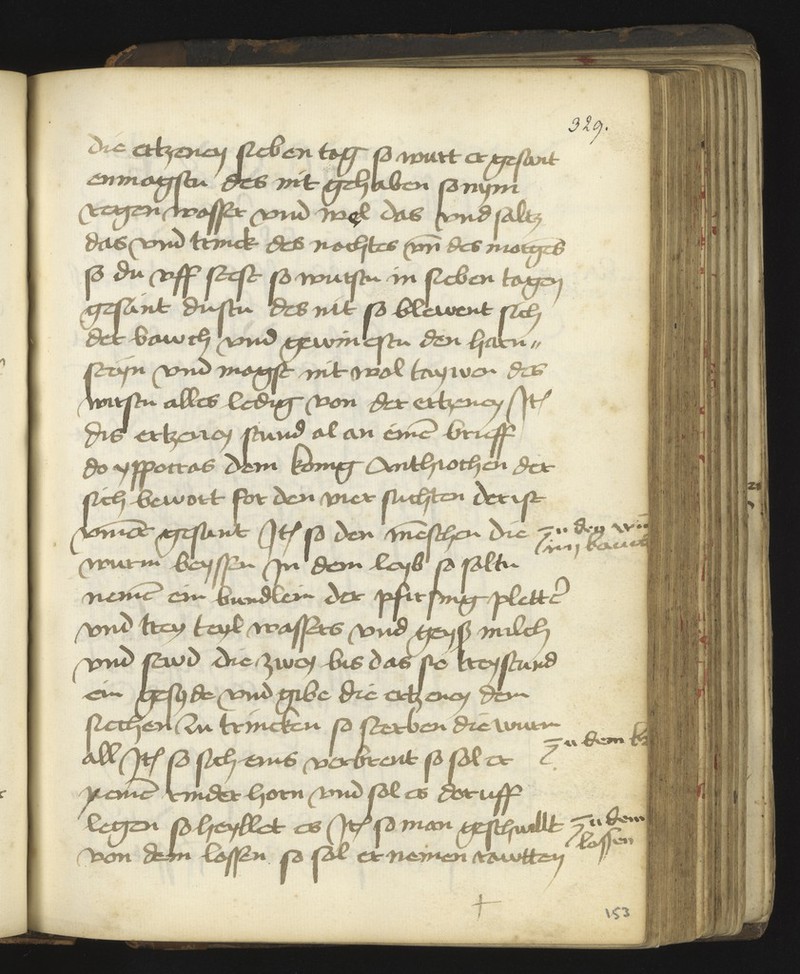 329.
die ertzeney sieben tag so wurt er gesunt
enmogstu des nit gehaben so nym
regen wasser vnd wel das vnd saltz
das vnd trinck des nachtes vn̄ des morgēs
so du vff stest so wurstu in sieben tagen
gesunt dustu des nit so blewent sich
der bawch vnd gewinestu den harn〃
steyn vnd magst nit wol
wirstu alles ledig von der ertzeney Itē
dis ertzeney stund al an einē brieff
do yppocras dem konig Anthiochen der
sich bewort for den vier suchten der ist
ymer gesunt Itē so den mēschen die
wurm beyssen In dem leyb so soltu
nemē ein bundlein der pfirsing pletter
vnd trey teyl wassers vnd geyß milch
vnd sewd die zwey bis das sie treystund
ein gesyde vnd gibe die ertzeney dem
siechen zu trincken so sterben die wurm
all Itē so sich eins verbrent so sol er
nemē rinder horn vnd sol es doruff
legen so heyllet es Itē so man geschwillt
von dem lossen so sol er nemen rawtten
zu den
im bauch
zu dem
zu dem
lossen
153